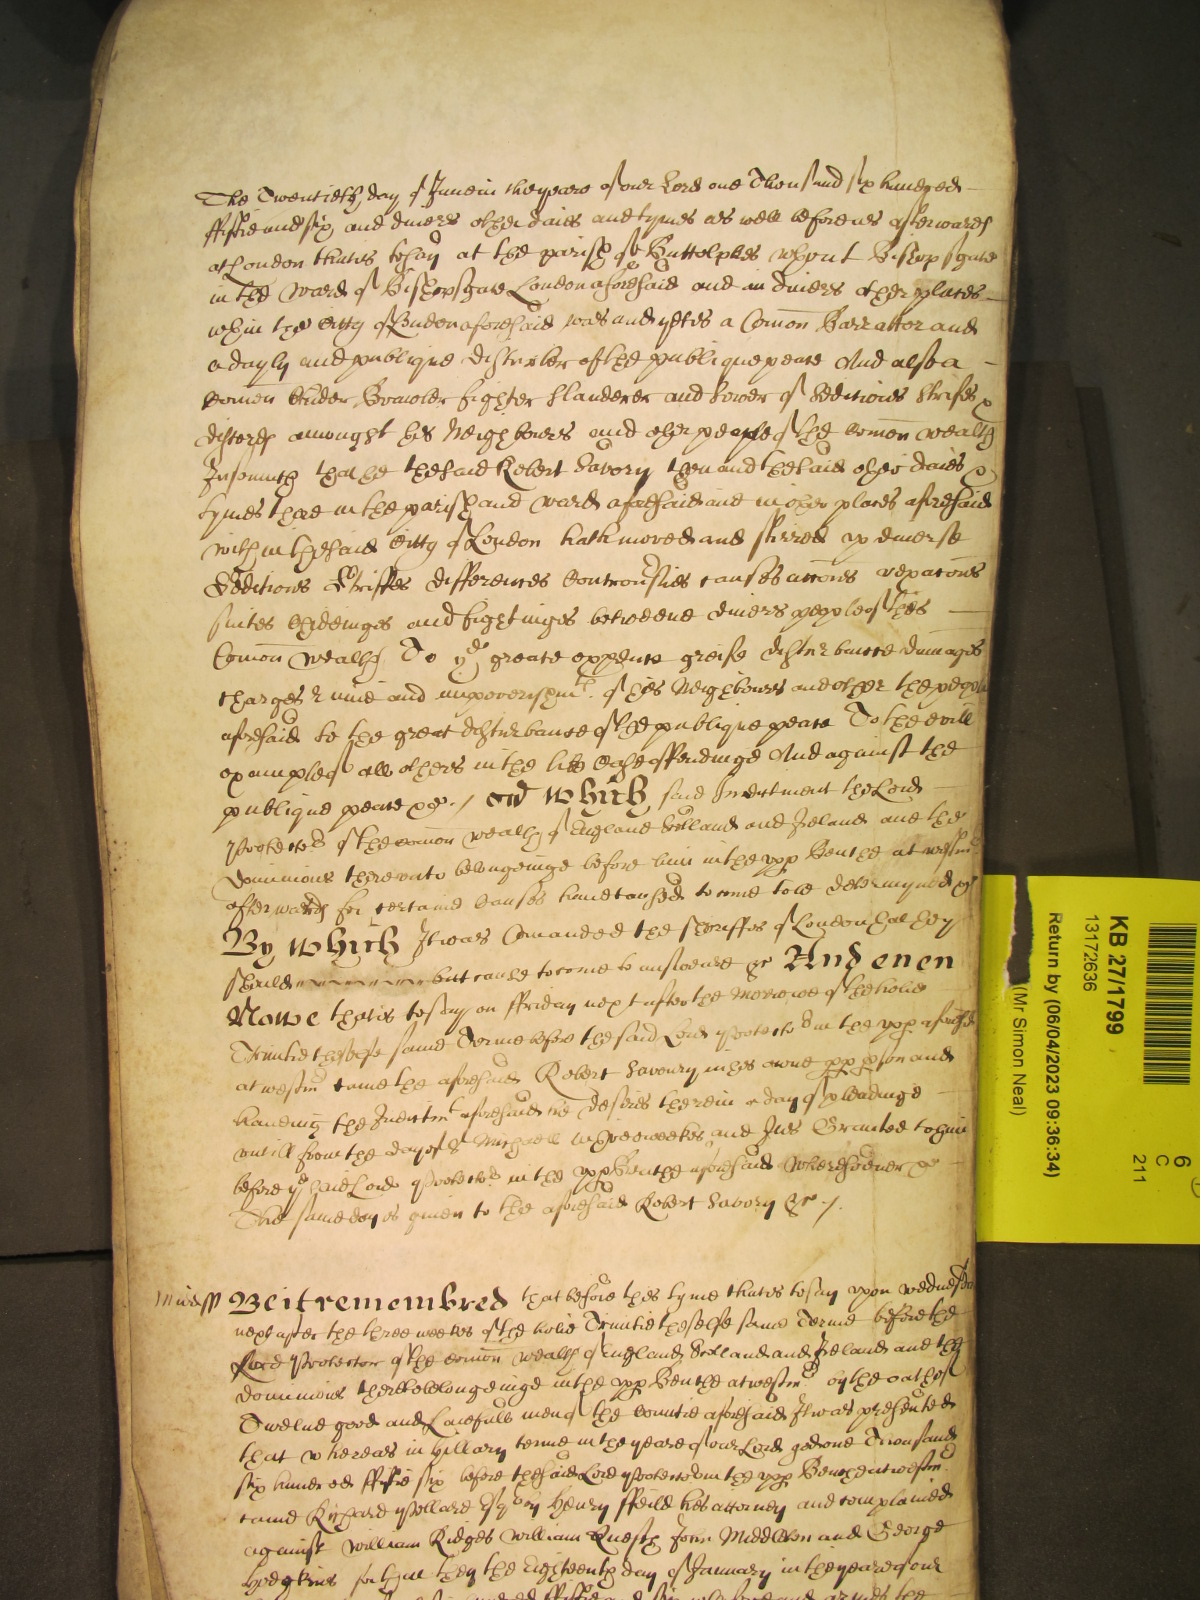 The Twentieth day of June in the yeare of our Lord one Thousand six hundred
ffiftie and six and divers other daies and tymes as well before as afterwards
at London that is to say at the parish of St Buttolphes wthout Bishopsgate
in the Ward of Bishopsgate London aforesaid and in divers other places
wthin the Citty of London aforesaid was and yet is a Comon Barrattor and
a dayly and publique disturber of the publique peace And also a
comon Brawler fighter slanderer and sower of seditions strifes &
discords amongst his Neighbours and other people of the comon wealth
Insomuch that he the said Robert Savory then and the said other daies &
tymes there in the parish and ward aforesaid and in other places aforesaid
within the said Citty of London hath moved and stirred up diverse
Seditions Striffes differences Controversies causes accons vexacons
suites Chideinges and fightinges betweene divers people of this
Comon Wealth To ye greate expence greife disturbance damages
charges ruine and impoverishmt. of his Neighbours and other the people
aforesaid to the great disturbance of the publique peace To the evill
example of all others in the like Case offendinge And against the
publique peace &c. / Wch which said Indictment the Lord
Protector of the comon wealth of England Scotland and Ireland and the
dominions thereunto belongeinge before him in the upp Benche at westmr
afterwards for certaine causes have caused to come to be determyned &c
By which It was Comanded the sheriffes of London that they
should but cause to come to answeare &c And even
Nowe that is to say on ffriday next after the Morrowe of the holie
Trinitie this selfe same Terme before the said Lord Protector in the upp aforesd
at westmr came the aforesaid Robert Savoury in his owne pp pson and
haveing the Indictmt aforesaid he desires therein a day of pleadinge
untill from the day of St Michaell in three weekes and It is Granted to him
before ye said Lord Protector in the upp Benche aforesaid Wheresoever &c
The same day is given to the aforesaid Robert Savory &c /.
Midd ss Be it remembred that before this tyme that is to say upon wednesday
next after the three weekes of the holie Trinitie this selfe same Terme before the
Lord Protector of the comon wealth of England Scotland and Ireland and the
dominions thereto belongeinge in the upp Benche at westmr by the oath of
Twelve good and Lawfull men of the Countie aforesaid It was presented
that whereas in hillary terme in the yeare of our Lord god one Thousand
six hundred ffiftie six before the said Lord Protector in the upp Benche at westmr
came Richard Pollard Esqr by Henry ffeild his attorney and complained
against William Ridges William John Middleton and George
Hodgkins for that they the Eighteenth day of January in the yeare of our